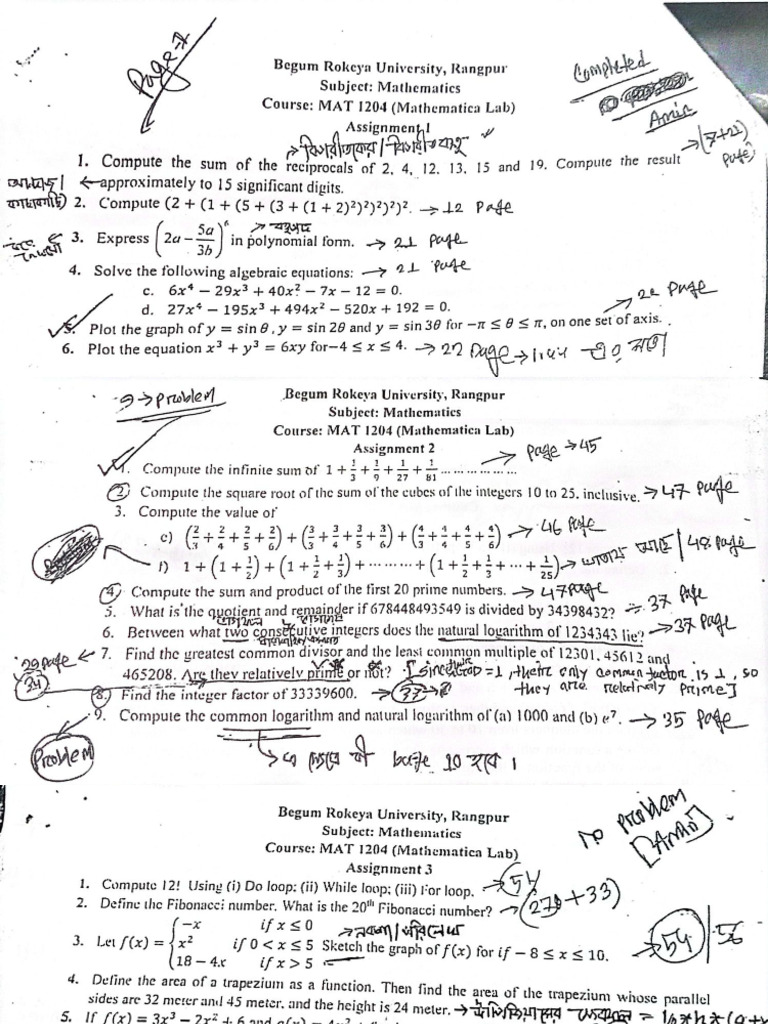 Page-1
Begum Rokeya University, Rangpur
Subject: Mathematics
Course: MAT 1204 (Mathematica Lab)
Completed
Amin
Assignment 1
1. Compute the sum of the reciprocals of 2, 4, 12, 13, 15 and 19. Compute the result
approximately to 15 significant digits.
page
2. Compute (2 + (1 + (5 + (3 + (1 + 2)²)²)²)²)². → 12 Page
3. Express (2a − 5a/3b)⁶ in polynomial form. → 21 Page
4. Solve the following algebraic equations: → 21 Page
c. 6x⁴ − 29x³ + 40x² − 7x − 12 = 0.
d. 27x⁴ − 195x³ + 494x² − 520x + 192 = 0.
Page
5. Plot the graph of y = sin θ, y = sin 2θ and y = sin 3θ for −π ≤ θ ≤ π, on one set of axis.
6. Plot the equation x³ + y³ = 6xy for −4 ≤ x ≤ 4. → 22 Page →
→ Problem
Begum Rokeya University, Rangpur
Subject: Mathematics
Course: MAT 1204 (Mathematica Lab)
Assignment 2
1. Compute the infinite sum of 1 + 1/3 + 1/9 + 1/27 + 1/81 ... ... ... ... ... ... → Page → 45
2. Compute the square root of the sum of the cubes of the integers 10 to 25, inclusive. → 47 Page
3. Compute the value of
c) (2/3 + 2/4 + 2/5 + 2/6) + (3/3 + 3/4 + 3/5 + 3/6) + (4/3 + 4/4 + 4/5 + 4/6) → 46 Page
f) 1 + (1 + 1/2) + (1 + 1/2 + 1/3) + ⋯ ⋯ ⋯ + (1 + 1/2 + 1/3 + ⋯ + 1/25) → আছে | 48 Page
4. Compute the sum and product of the first 20 prime numbers. → 47 Page
5. What is the quotient and remainder if 678448493549 is divided by 34398432? → 37 Page
6. Between what two consecutive integers does the natural logarithm of 1234343 lie? → 37 Page
7. Find the greatest common divisor and the least common multiple of 12301, 45612 and
29 Page
34
465208. Are they relatively prime or not? [since GCD = 1, their only common factor is 1, so
they are relatively prime]
8. Find the integer factor of 33339600. → 37
9. Compute the common logarithm and natural logarithm of (a) 1000 and (b) e⁷. → 35 Page
Problem
10 হবে।
Begum Rokeya University, Rangpur
Subject: Mathematics
Course: MAT 1204 (Mathematica Lab)
No problem
[Amin]
Assignment 3
1. Compute 12! Using (i) Do loop; (ii) While loop; (iii) For loop. → 54
2. Define the Fibonacci number. What is the 20th Fibonacci number? →
3. Let f(x) = { −x if x ≤ 0
x² if 0 < x ≤ 5 Sketch the graph of f(x) for if − 8 ≤ x ≤ 10. → 54 / 56
18 − 4x if x > 5
4. Define the area of a trapezium as a function. Then find the area of the trapezium whose parallel
sides are 32 meter and 45 meter, and the height is 24 meter.
5. If f(x) = 3x³ − 7x² + 6 and